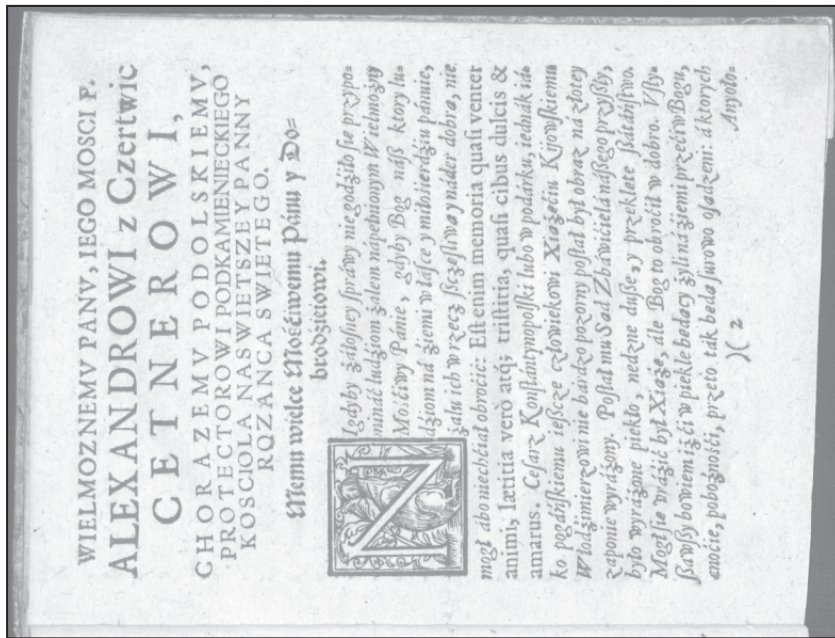 WIELMOZNEMV PANV, IEGO MOSCI P.
ALEXANDROWI z Czertwic
CETNEROWI,
CHORAZEMV PODOLSKIEMV,
PROTECTOROWI PODKAMIENIECKIEGO
KOSCIOLA NASWIETSZEY PANNY
ROZANCA SWIETEGO.
Memu wielce Mośćiwemu Pánu y Do=
brodźieiowi.
NIgdyby żáłosney spráwy nie godźiło sie przypo-
mináć ludźiom żalem nápełnionym Wielmożny
Mośćiwy Pánie, gdyby Bog náß ktory lu-
dźiom ná źiemi w łásce y miłośierdźiu pánuie,
żalu ich w rzecz sczęśliwą y náder dobrą, nie
mogł ábo niechćiał obroćić: Est enim memoria quasi venter
animi, lætitia verò atq; tristitia, quasi cibus dulcis &
amarus. Cesarz Konstántynopolski lubo w podárku, iednák iá-
ko pogáńskiemu ieszcze człowiekowi Xiążęćiu Kijowskiemu
Włodźimierzowi nie bárdzo pozorny posłał był obraz ná złotey
zaponie wyráżony. Posłał mu Sąd Zbáwićielá nászego przyszły,
było wyráżone piekło, nędzne dusze, y przeklęte ßátáństwo.
Mogł sie vráźić był Xiążę, ale Bog to obroćił w dobro. Vsły-
ßawszy bowiem iż ći w piekle będący żyli ná źiemi przećiw Bogu,
cnoćie, pobożnośći, przeto ták bedą surowo osądzeni: á ktorych
)( 2
Anyoło-